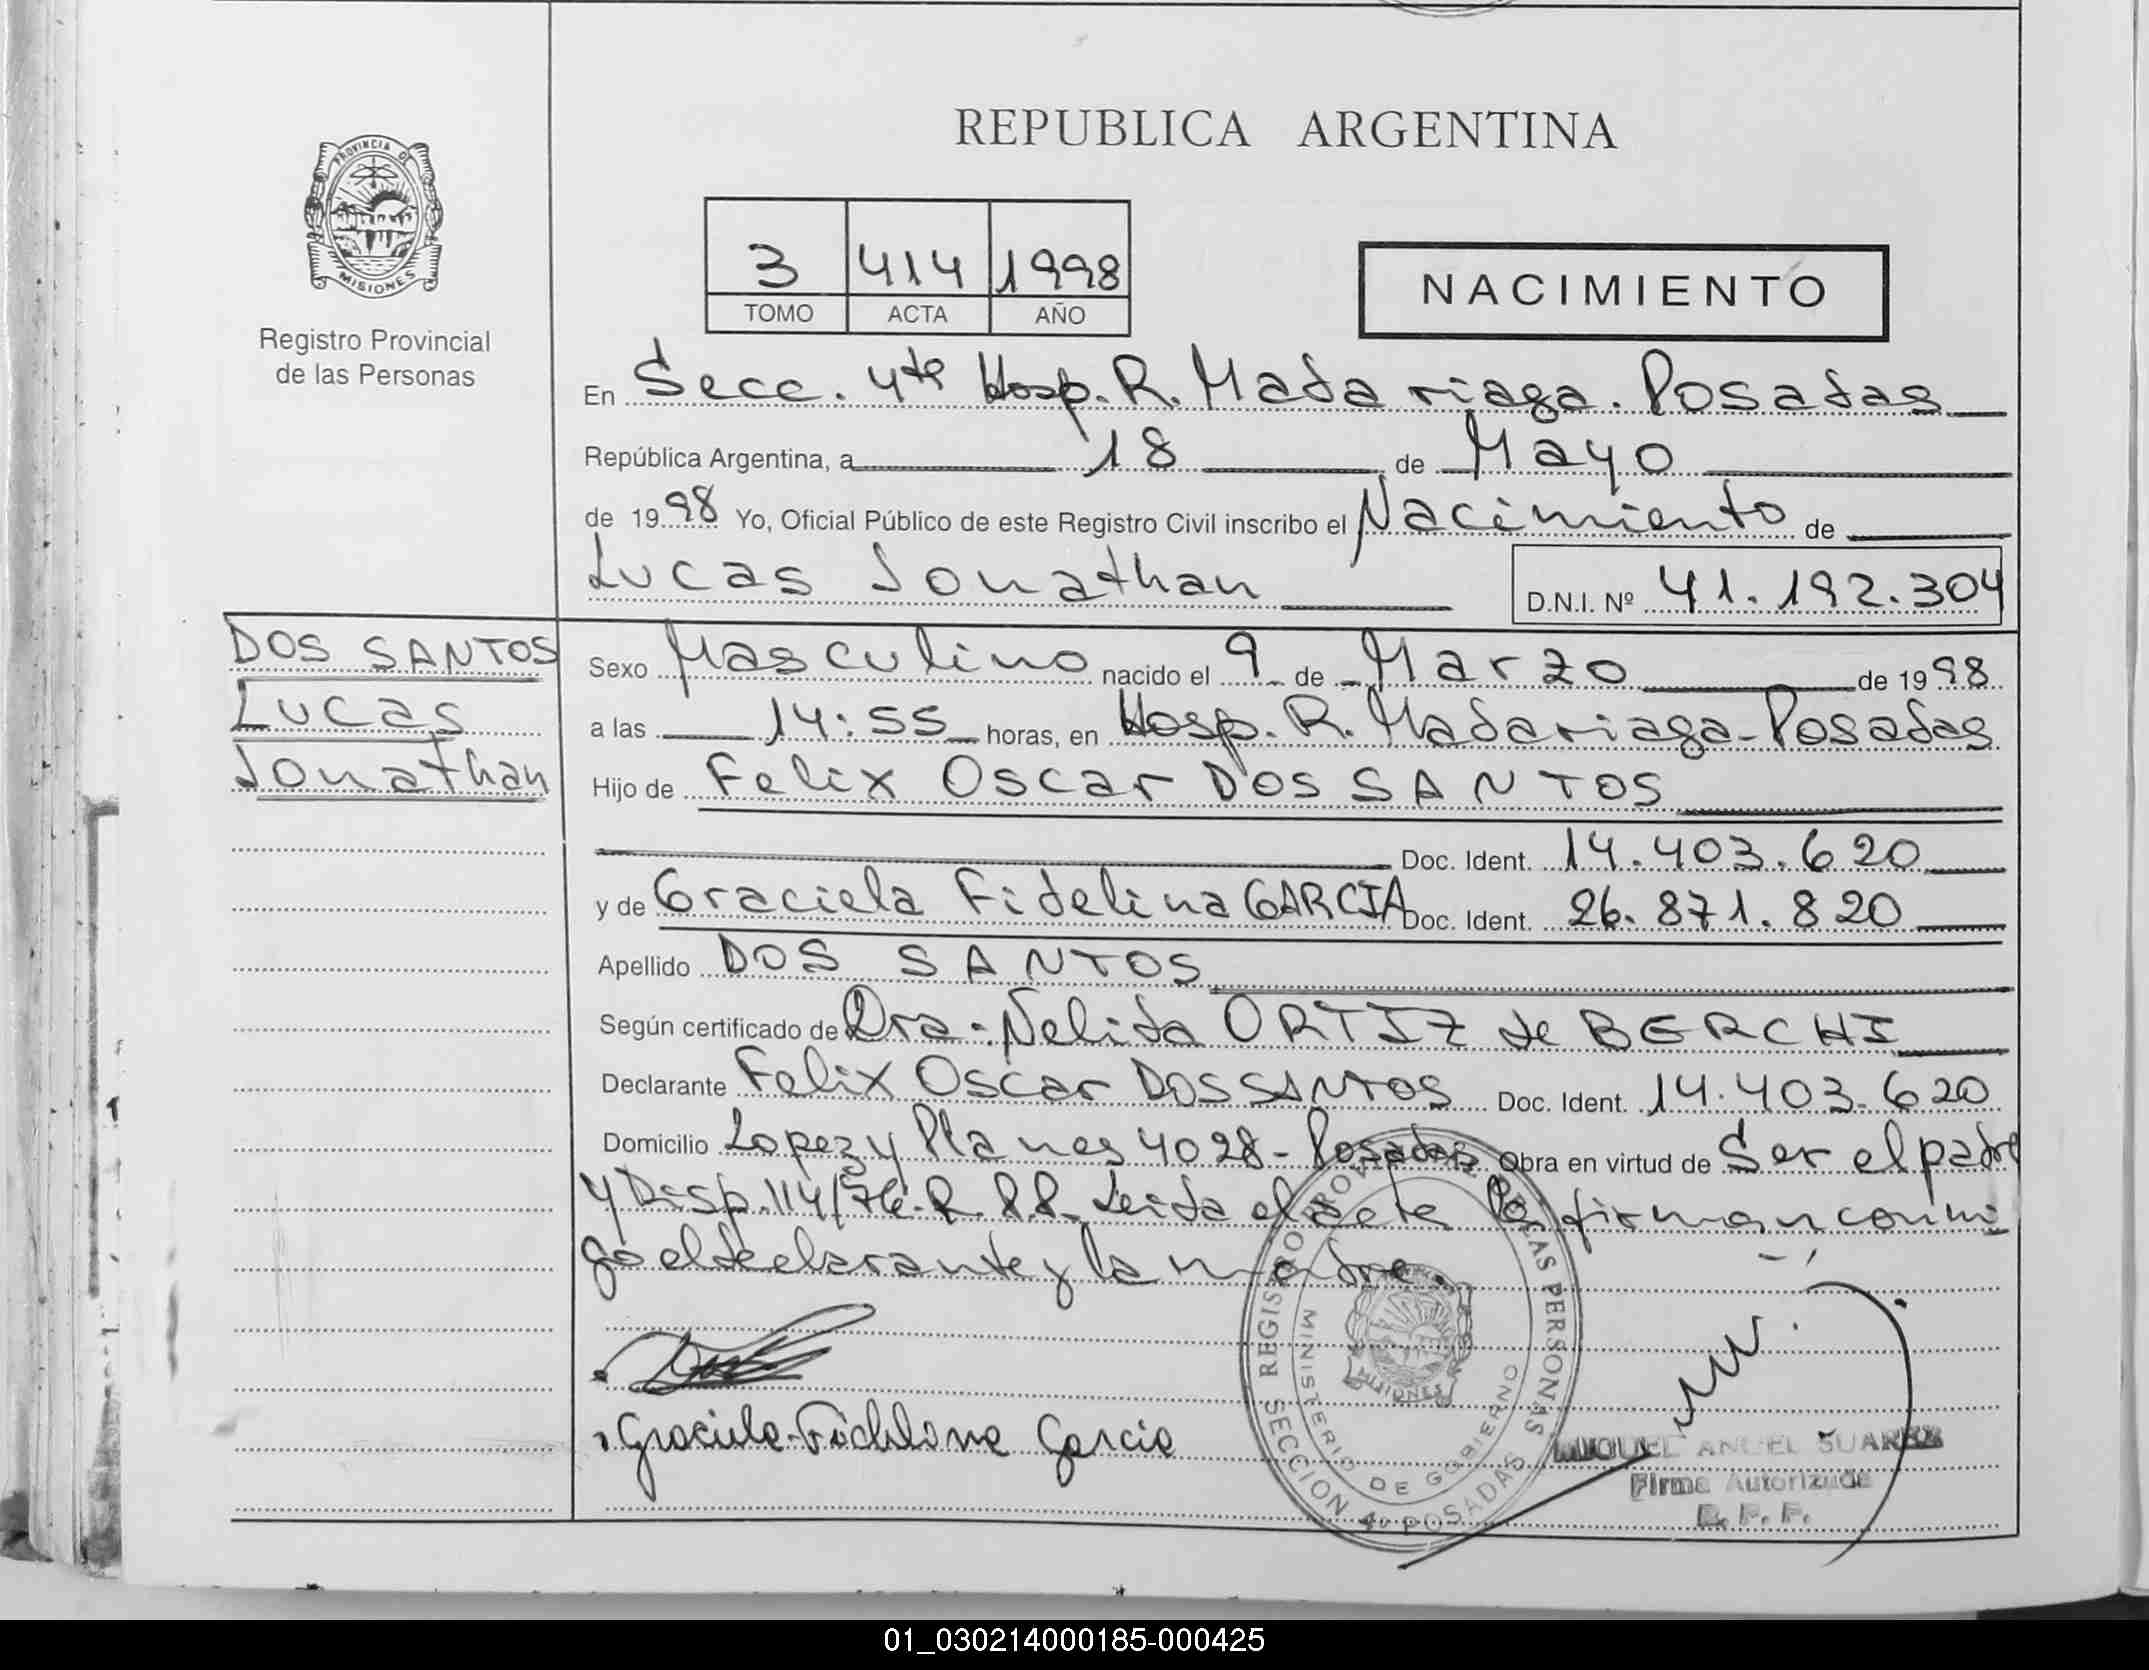 REPUBLICA ARGENTINA
PROVINCIA DE
MISIONES
Registro Provincial
de las Personas
3 414 1998
TOMO ACTA AÑO
NACIMIENTO
En Secc. 4ta Hosp. R. Madariaga. Posadas
República Argentina, a 18 de Mayo
de 1998 Yo, Oficial Público de este Registro Civil inscribo el Nacimiento de
Lucas Jonathan D.N.I. Nº 41.192.304
DOS SANTOS
Lucas
Jonathan
Sexo Masculino nacido el 9 de Marzo de 1998
a las 14:55 horas, en Hosp. R. Madariaga - Posadas
Hijo de Felix Oscar DOS SANTOS
Doc. Ident. 14.403.620
y de Graciela Fidelina GARCIA Doc. Ident. 26.871.820
Apellido DOS SANTOS
Según certificado de Dra. Nelida ORTIZ de BERCHI
Declarante Felix Oscar DOS SANTOS Doc. Ident. 14.403.620
Domicilio Lopez y Planes 4028 - Posadas Obra en virtud de Ser el padre
y Disp. 114/76. R. P.P. Leida el acta la firman conmi
go el declarante y la madre.
Graciela Garcia
REGISTRO PROVINCIAL DE LAS PERSONAS
MINISTERIO DE GOBIERNO
MISIONES
SECCION 4º POSADAS
MIGUEL ANGEL SUAREZ
Firma Autorizada
R. P. P.
01_030214000185-000425